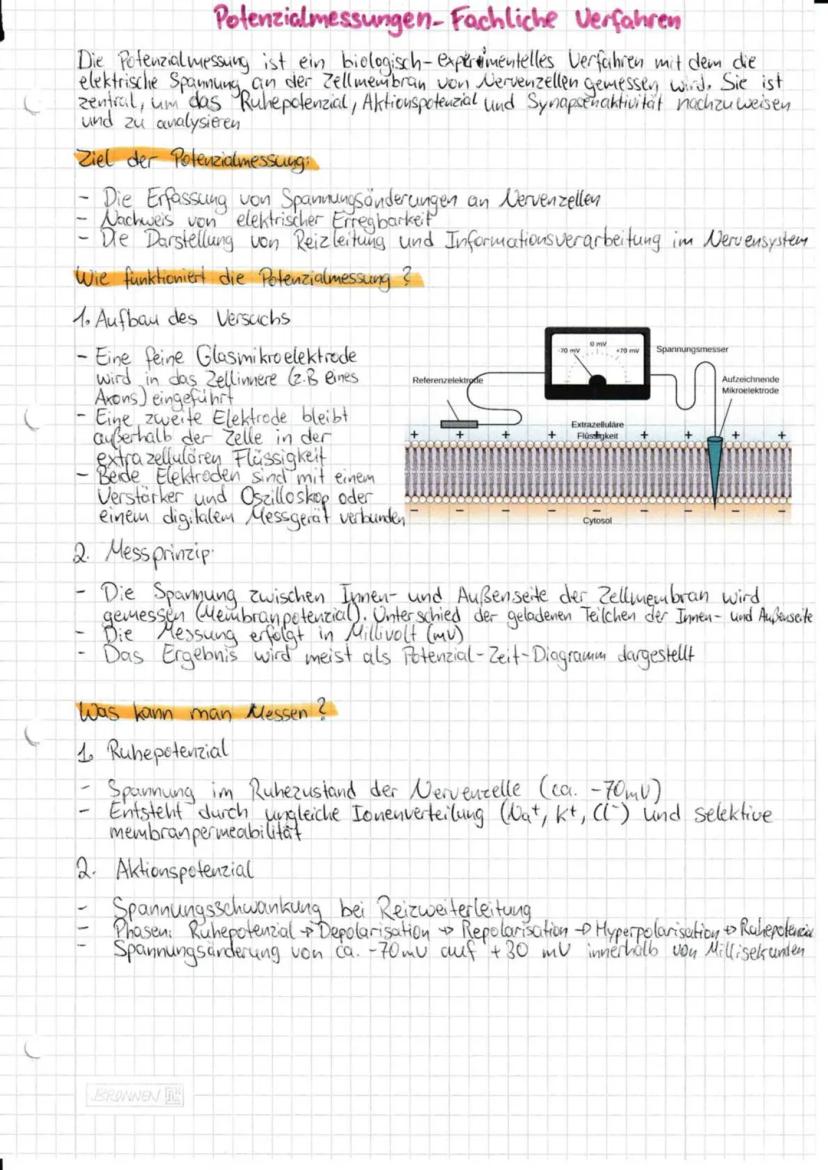 Potenzialmessungen- Fachliche Verfahren
Die Potenzialmessung ist ein biologisch-experimentelles Verfahren mit dem die
elektrische Spannung an der Zellmembran von Nervenzellen gemessen wird. Sie ist
zentral, um das Ruhepotenzial, Aktionspotenzial und Synapsenaktivität nachzuweisen
und zu analysieren
Ziel der Potenzialmessung:
- Die Erfassung von Spannungsänderungen an Nervenzellen
- Nachweis von elektrischer Erregbarkeit
- Die Darstellung von Reizleitung und Informationsverarbeitung im Nervensystem
Wie funktioniert die Potenzialmessung?
1. Aufbau des Versuchs
- Eine feine Glasmikroelektrode
wird in das Zellinnere (z.B eines
Axons) eingeführt
- Eine zweite Elektrode bleibt
außerhalb der Zelle in der
extrazellulären Flüssigkeit
- Beide Elektroden sind mit einem
Verstärker und Oszilloskop oder
einem digitalem Messgerät verbunden
-70 mV
0 mV
+70 mV
Spannungsmesser
Referenzelektrode
Aufzeichnende
Mikroelektrode
Extrazelluläre
Flüssigkeit
+ + + + + + + +
- - - - - - - -
Cytosol
2. Messprinzip
- Die Spannung zwischen Innen- und Außenseite der Zellmembran wird
gemessen (Membranpotenzial). Unterschied der geladenen Teilchen der Innen- und Außenseite
- Die Messung erfolgt in Millivolt (mV)
- Das Ergebnis wird meist als Potenzial-Zeit-Diagramm dargestellt
Was kann man Messen?
1. Ruhepotenzial
- Spannung im Ruhezustand der Nervenzelle (ca. -70mV)
- Entsteht durch ungleiche Ionenverteilung (Na⁺, K⁺, Cl⁻) und selektive
membranpermeabilität
2. Aktionspotenzial
- Spannungsschwankung bei Reizweiterleitung
- Phasen: Ruhepotenzial → Depolarisation → Repolarisation → Hyperpolarisation → Ruhepotenzial
- Spannungsänderung von ca. -70mV auf +30 mV innerhalb von Millisekunden
BRUNNEN